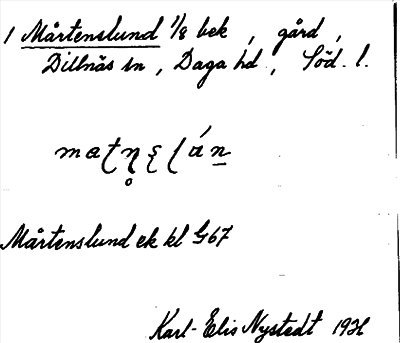 1 Mårtenslund 1/8 bek, gård,
Dillnäs sn, Daga hd, Söd. l.
Mårtenslund ek kl G67
Karl-Elis Nystedt